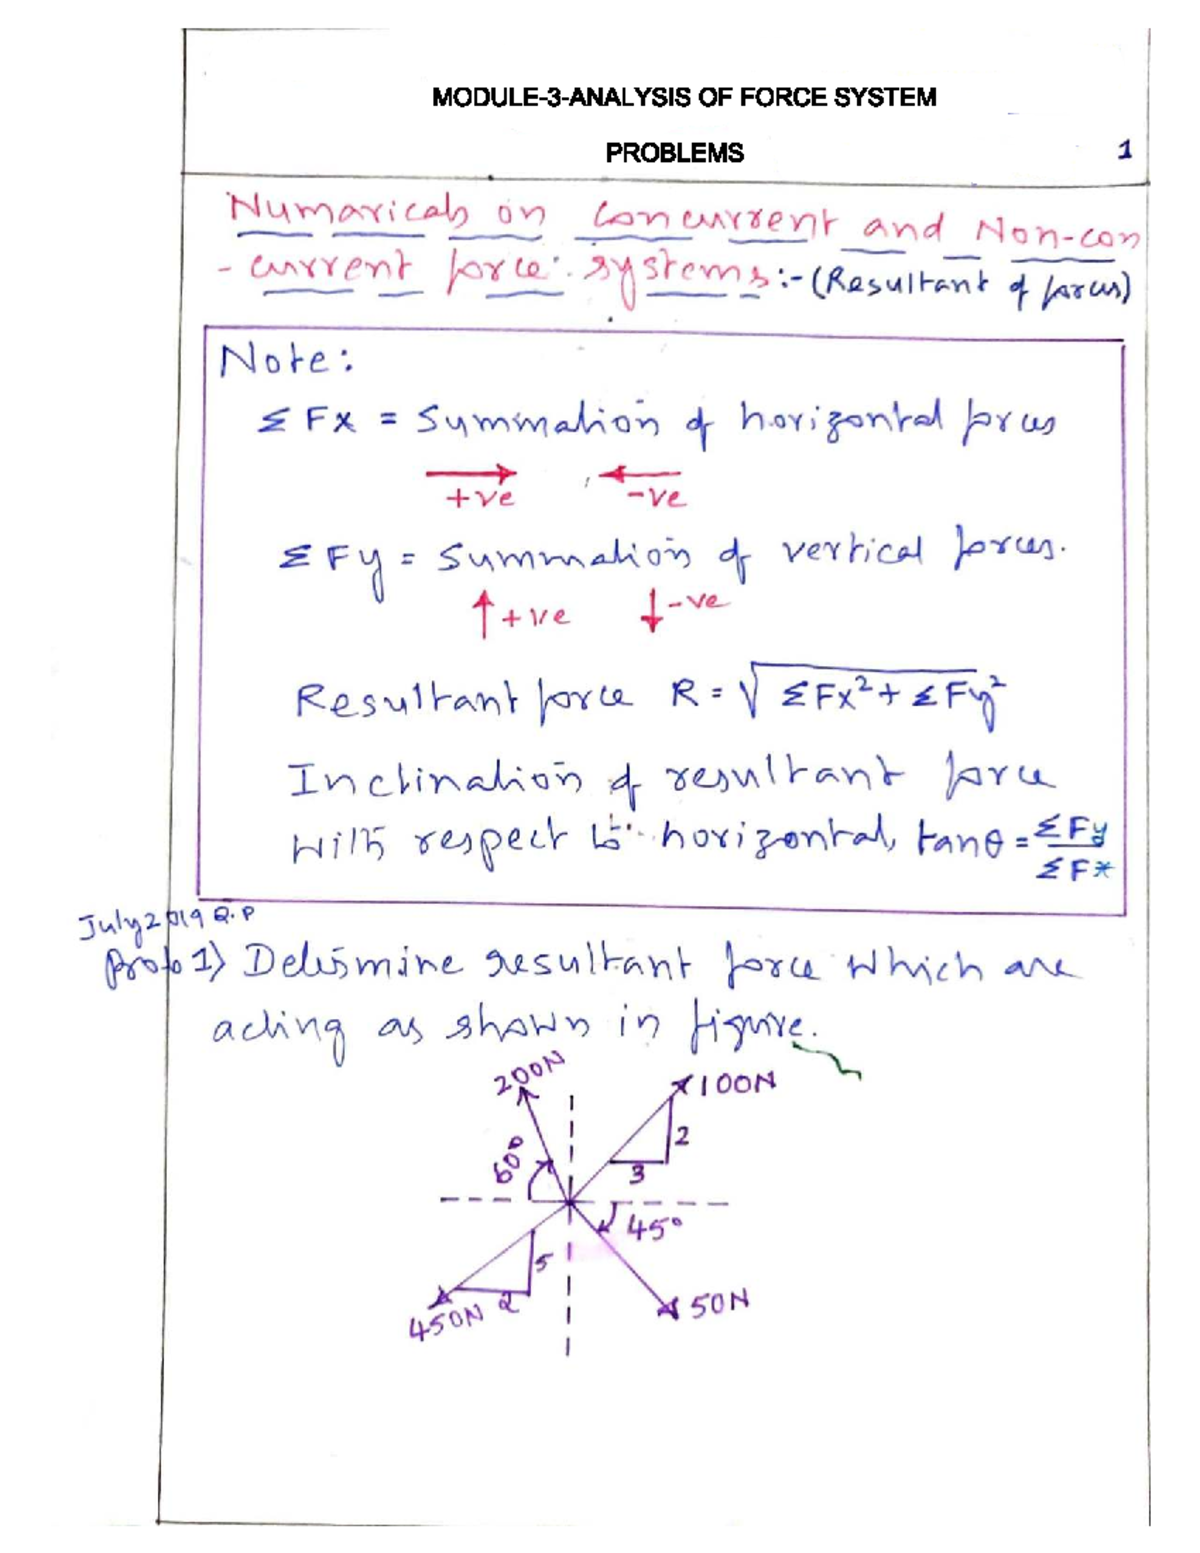 MODULE-3-ANALYSIS OF FORCE SYSTEM
PROBLEMS
1
Numaricals on Concurrent and Non-con
-current force systems:-(Resultant of forces)
Note:
ΣFx = Summation of horizontal forces
+ve -ve
ΣFy = Summation of vertical forces.
↑+ve ↓-ve
Resultant force R = √ΣFx²+ΣFy²
Inclination of resultant force
With respect to horizontal, tanθ = ΣFy/ΣFx
July 2019 Q.P
Prob 1) Determine resultant force which are
acting as shown in figure.
200N
100N
60°
2
3
45°
5
2
450N
50N